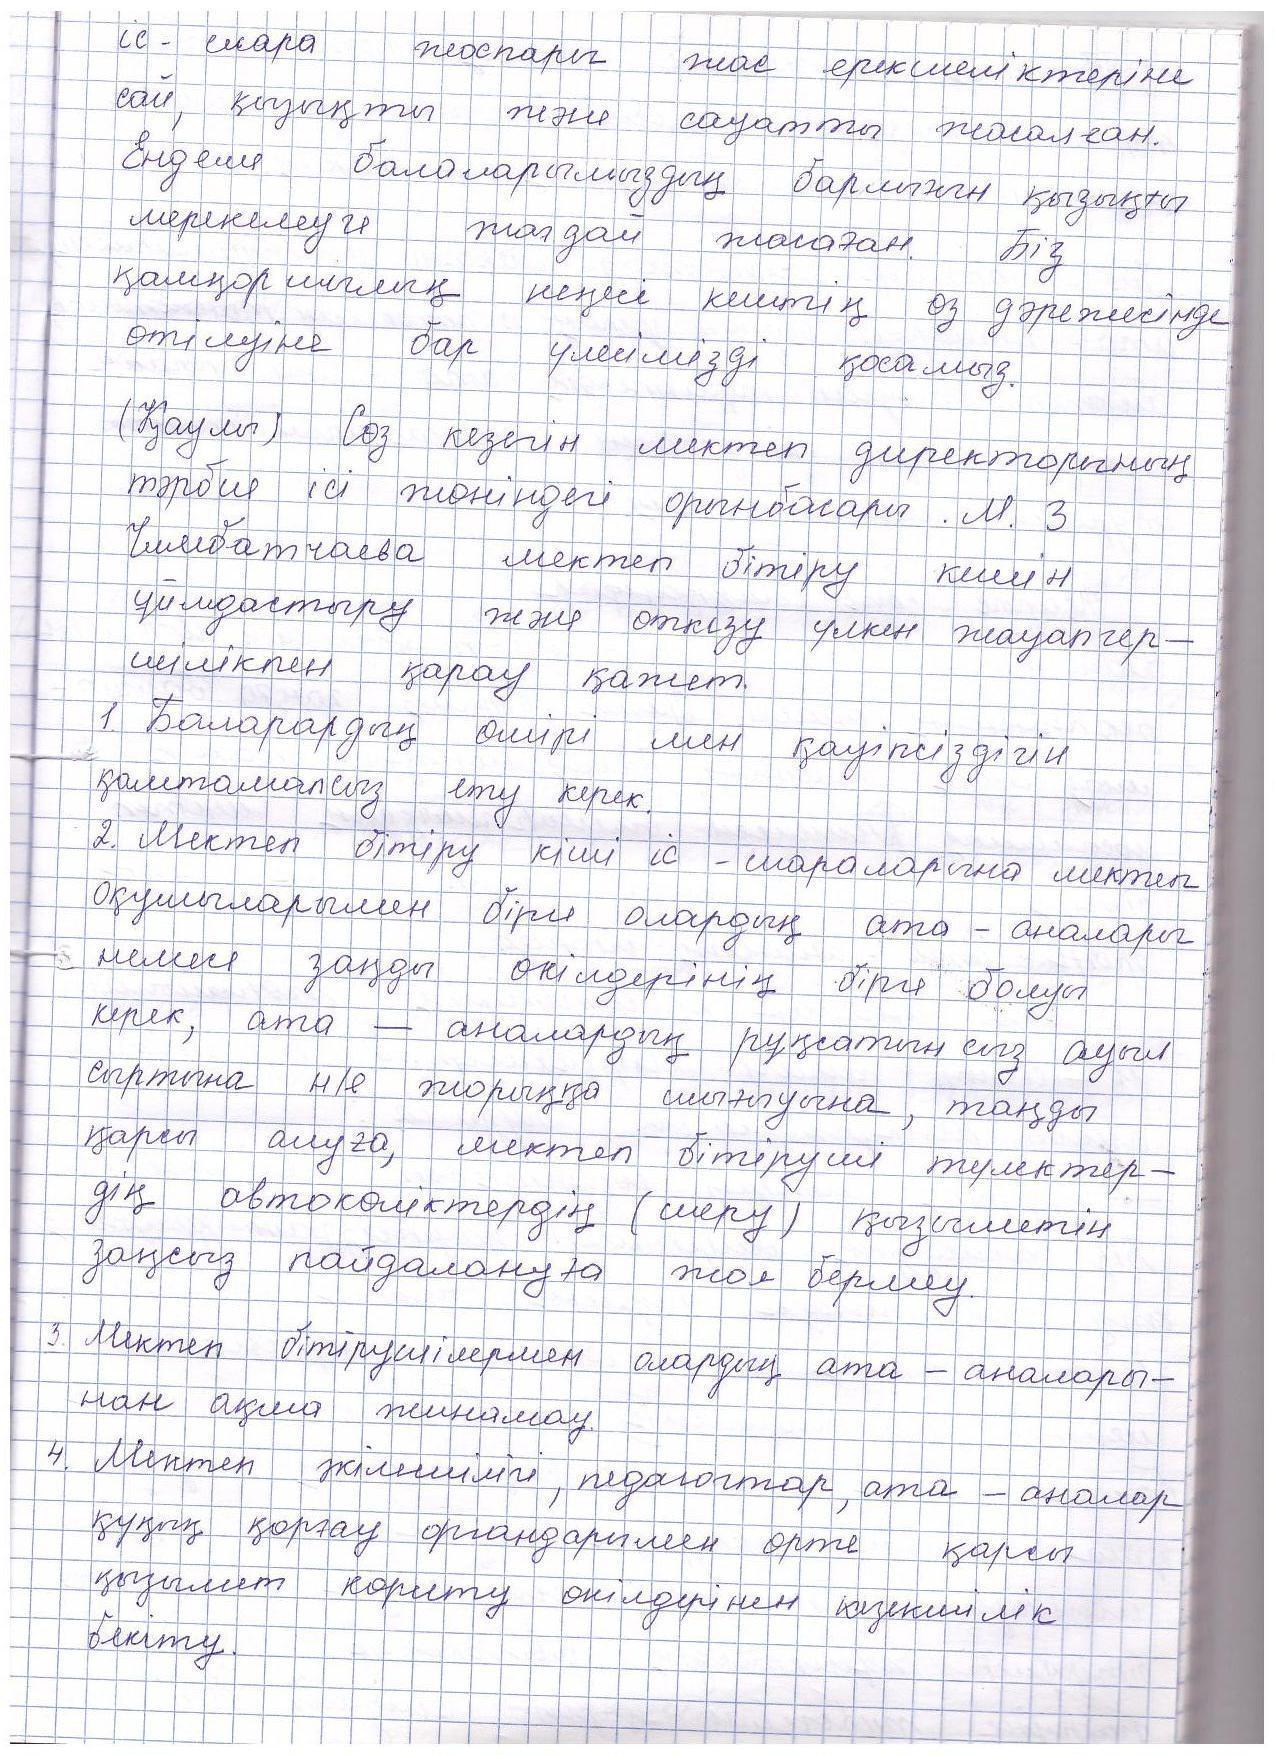 іс - шара жоспары жас ерекшеліктеріне
сай, қызықты және сауатты жасалған.
Ендеше балаларымыздың барлығын қызықты
мерекелеуге жағдай жасаған. Біз
қамқоршылық кеңесі кештің өз дәрежесінде
өтілуіне бар үлесімізді қосамыз.
(Қаулы) Сөз кезегін мектеп директорының
тәрбие ісі жөніндегі орынбасары . М. З
Чимбатчаева мектеп бітіру кешін
ұйымдастыру және өткізу үлкен жауапгер-
шілікпен қарау қажет.
1. Баларардың өмірі мен қауіпсіздігін
қамтамапсыз ету керек.
2. Мектеп бітіру кіші іс - шараларына мектеп
оқушыларымен бірге олардың ата - аналары
немесе заңды өкілдерінің бірге болуы
керек, ата — аналардың рұқсатын сыз ауыл
сыртына н/е жорыққа шығуына, таңды
қарсы алуға, мектеп бітіруші түлектер-
дің автокөліктердің (шеру) қызыметін
заңсыз пайдалануға жол бермеу.
3. Мектеп бітірушілермен олардың ата - аналары-
нан ақша жинамау.
4. Мектеп әкімшілігі, педагогтар, ата - аналар
құқық қорғау органдарымен өртке қарсы
қызымет көрсету өкілдерінен кезекшілік
бекіту.